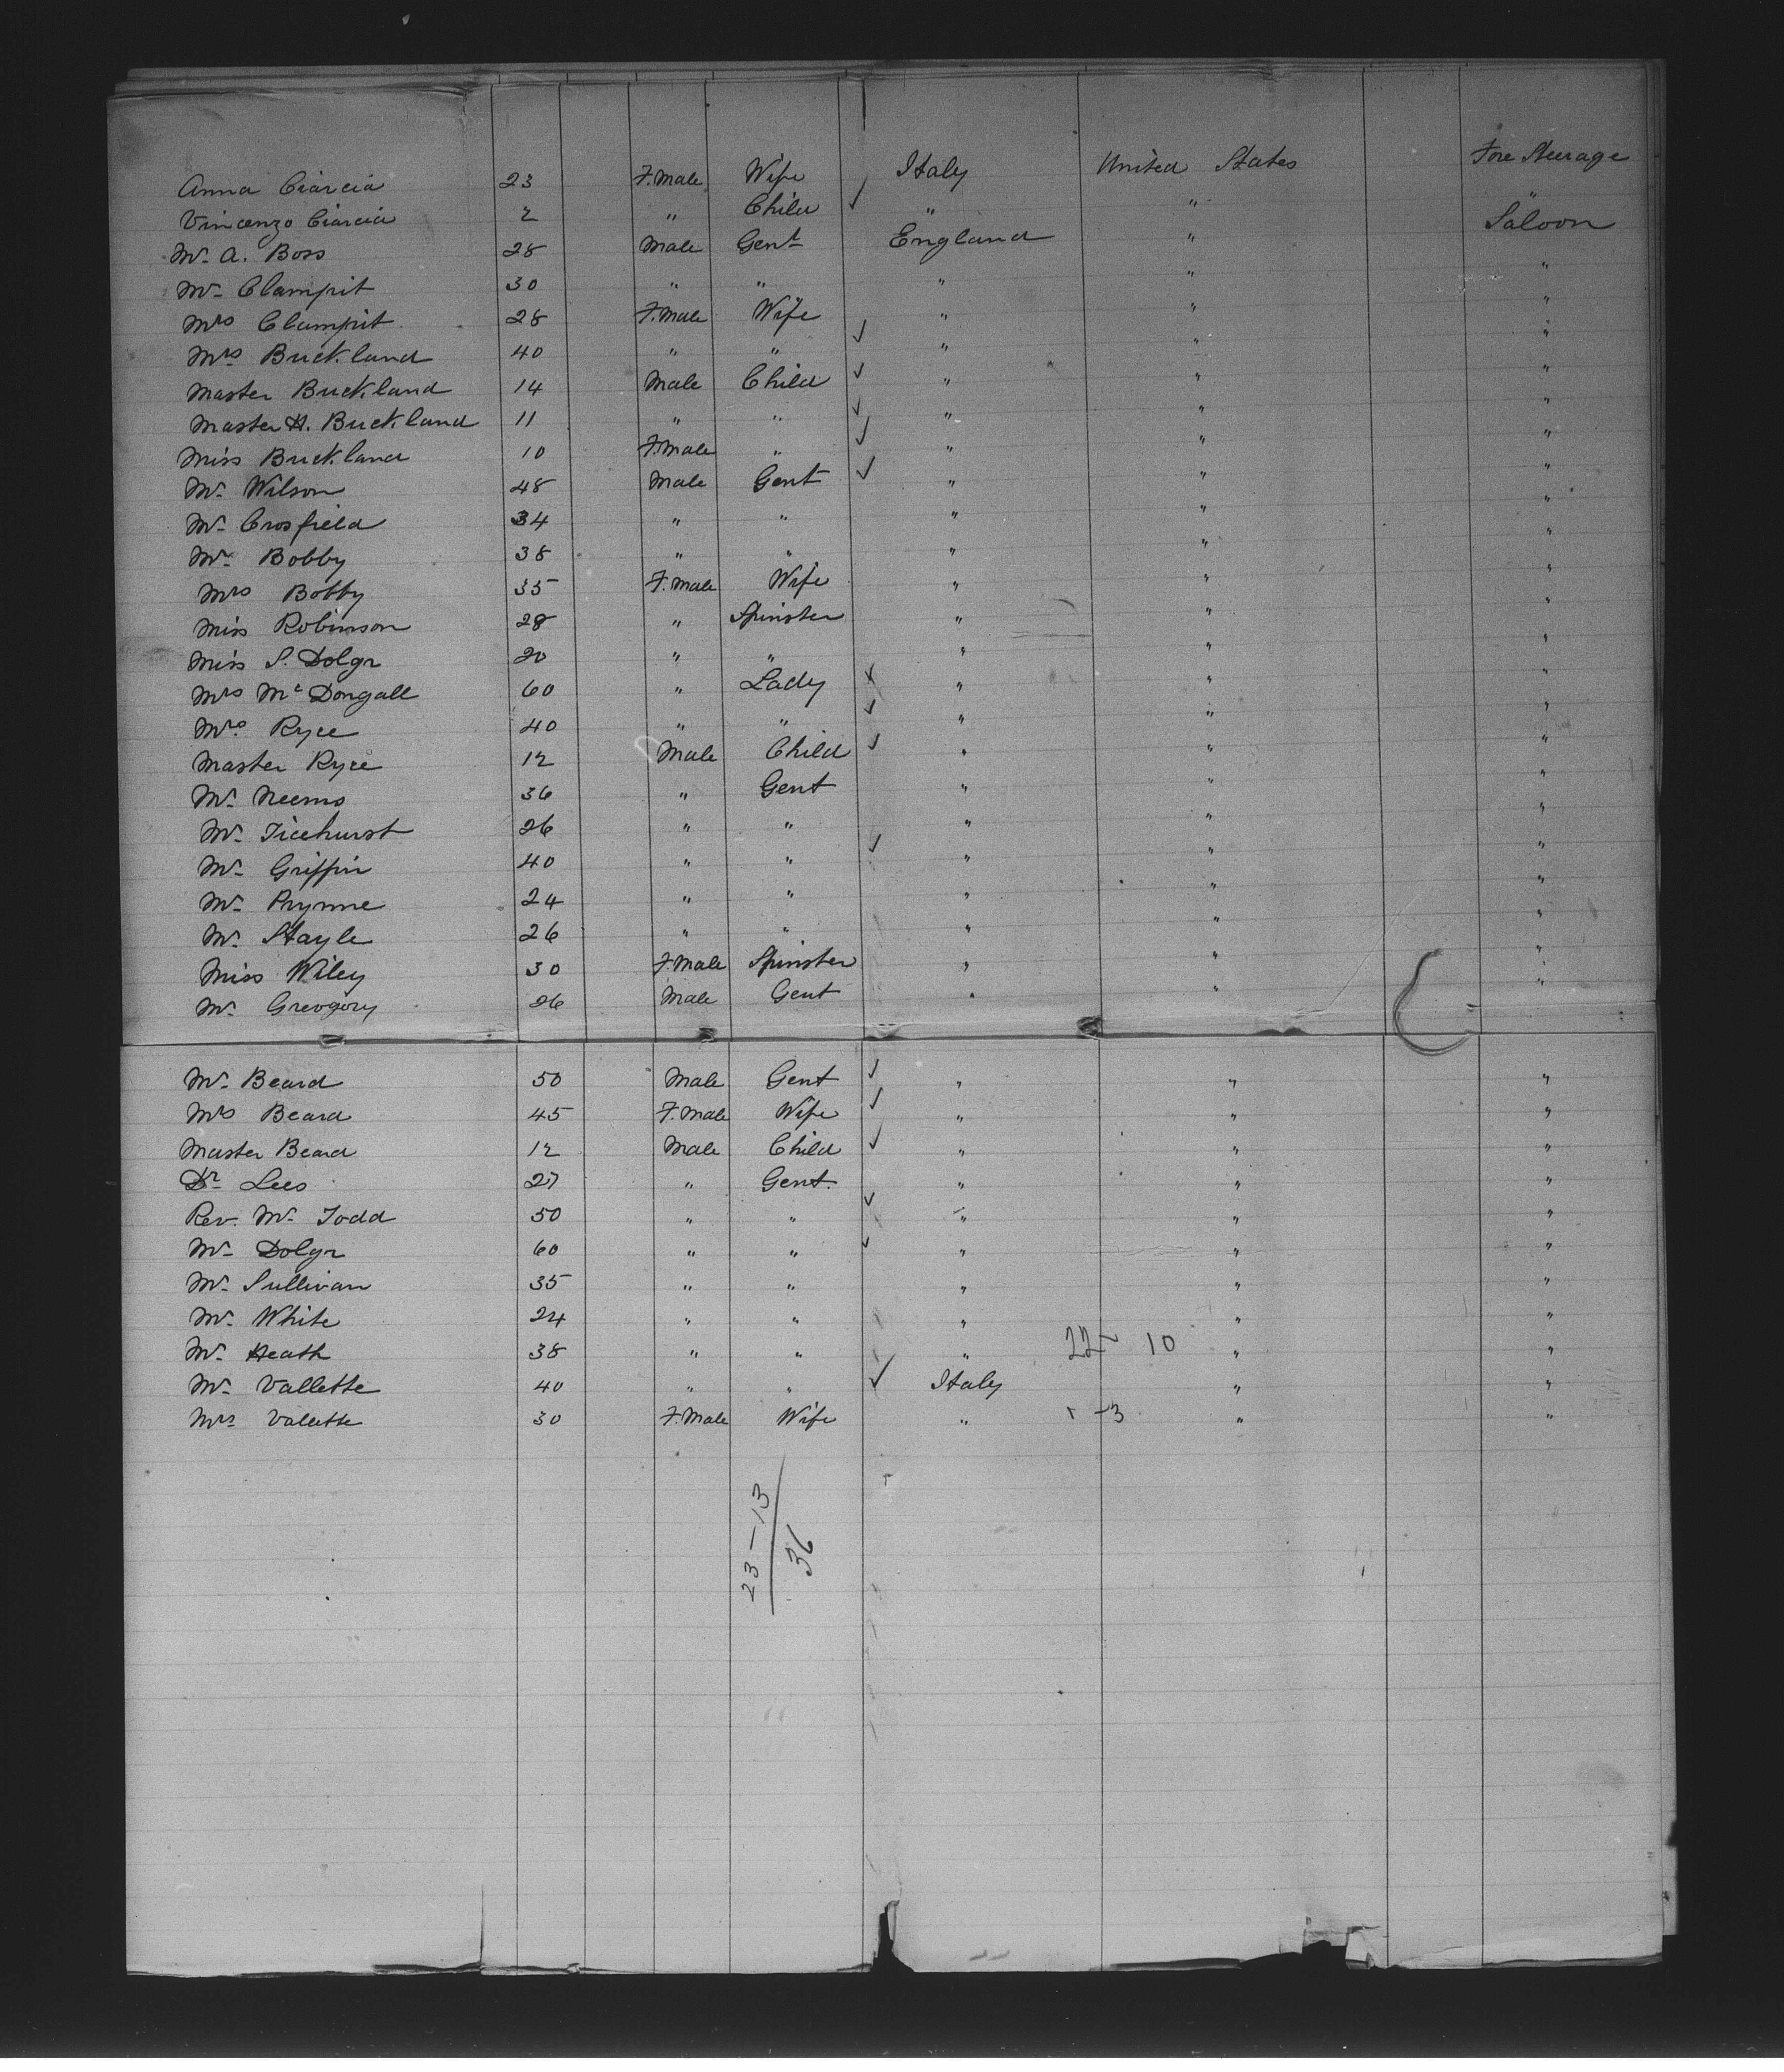 Anna Ciarcia 23 F.Male Wife Italy United States Fore Steerage
Vincenzo Ciarcia 2 " Child ✓ " " "
Mr. A. Boss 28 Male Gent England " Saloon
Mr. Clampit 30 " " " " "
Mrs Clampit 28 F.Male Wife " " "
Mrs Buckland 40 " " ✓ " " "
Master Buckland 14 Male Child ✓ " " "
Master H. Buckland 11 " " ✓ " " "
Miss Buckland 10 F.Male " ✓ " " "
Mr. Wilson 48 Male Gent ✓ " " "
Mr. Crosfield 34 " " " " "
Mr. Bobby 38 " " " " "
Mrs Bobby 35 F.Male Wife " " "
Miss Robinson 28 " Spinster " " "
Miss S. Dolgr 20 " " " " "
Mrs McDongall 60 " Lady X " " "
Mrs. Ryce 40 " " ✓ " " "
Master Ryce 12 Male Child ✓ " " "
Mr. Neems 36 " Gent " " "
Mr. Ticehurst 26 " " " " "
Mr. Griffin 40 " " ✓ " " "
Mr. Prynne 24 " " " " "
Mr. Stayle 26 " " " " "
Miss Wiley 30 F.Male Spinster " " "
Mr. Grevgory 26 Male Gent " " "
Mr. Beard 50 Male Gent ✓ " " "
Mrs Beard 45 F.Male Wife ✓ " " "
Master Beard 12 Male Child ✓ " " "
Dr. Lees 27 " Gent. " " "
Rev. Mr. Todd 50 " " ✓ " " "
Mr. Dolgr 60 " " ✓ " " "
Mr. Sullivan 35 " " " " "
Mr. White 24 " " " " "
Mr. Heath 38 " " " 22- 10 " "
Mr. Vallette 40 " " ✓ Italy " "
Mrs Valette 30 F.Male Wife " -3 " "
23-13
36